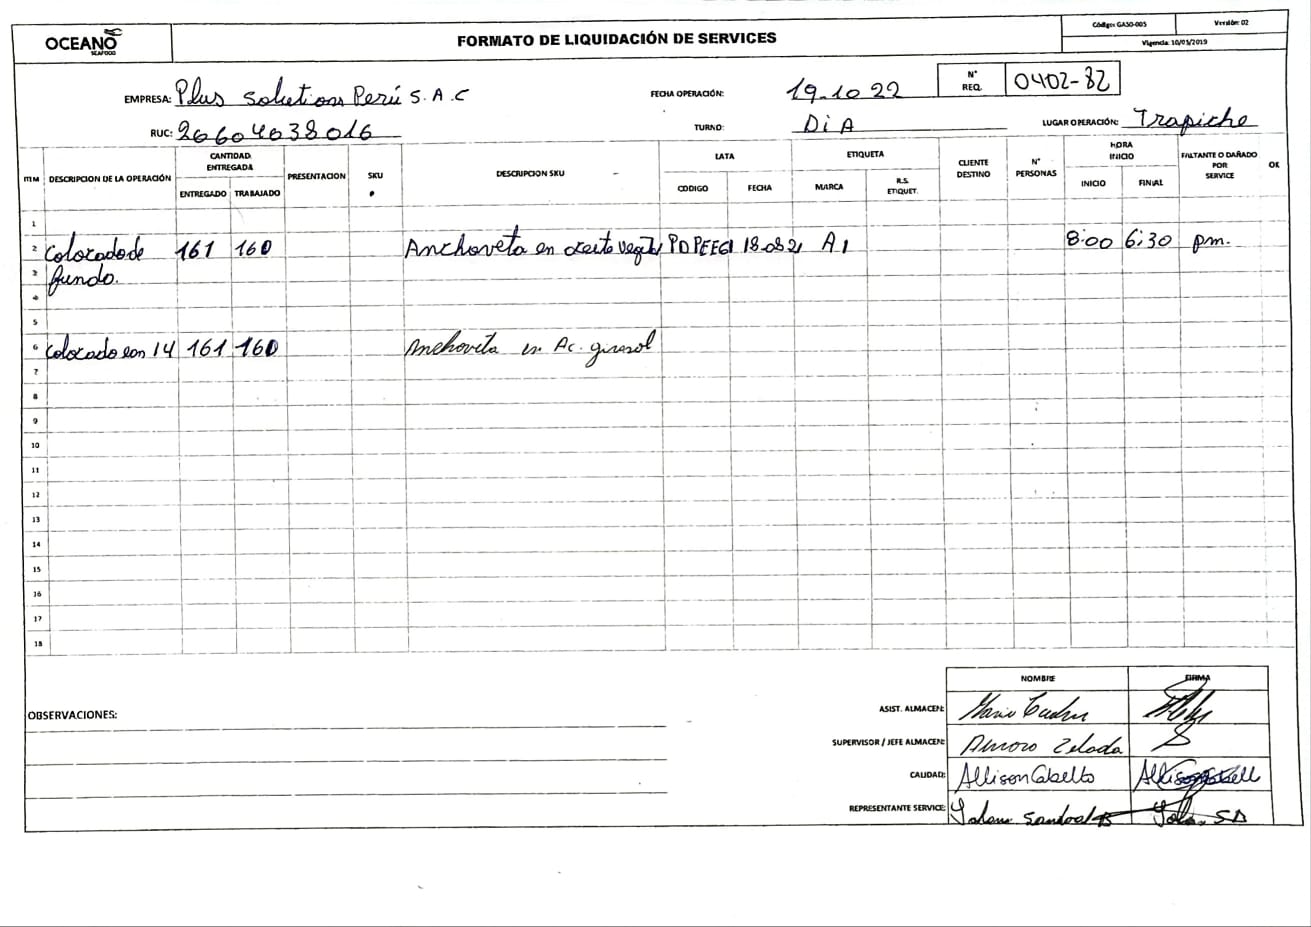 OCEANO
SEAFOOD
FORMATO DE LIQUIDACIÓN DE SERVICES
Código: GASO-005
Versión: 02
Vigencia: 10/05/2019
EMPRESA: Plus Solutions Perú S.A.C
FECHA OPERACIÓN: 19-10 22
N° REQ. 0402-82
RUC: 20604038016
TURNO: DiA
LUGAR OPERACIÓN: Trapiche
ITM DESCRIPCION DE LA OPERACIÓN CANTIDAD ENTREGADA PRESENTACION SKU DESCRIPCION SKU LATA ETIQUETA CLIENTE DESTINO N° PERSONAS HORA INICIO FALTANTE O DAÑADO POR SERVICE OK
ENTREGADO TRABAJADO CODIGO FECHA MARCA R.S. ETIQUET. INICIO FINAL
1
2 Colocado de 161 160 Anchoveta en aceite veget 18-08-21 A1 8:00 6:30 pm.
3 fundo.
4
5
6 Colocado con 14 161 160 Anchoveta en Ac. girasol
7
8
9
10
11
12
13
14
15
16
17
18
NOMBRE FIRMA
OBSERVACIONES:
ASIST. ALMACEN: Mario
SUPERVISOR / JEFE ALMACEN: Zelada
CALIDAD: Allison
REPRESENTANTE SERVICE: Sandoval